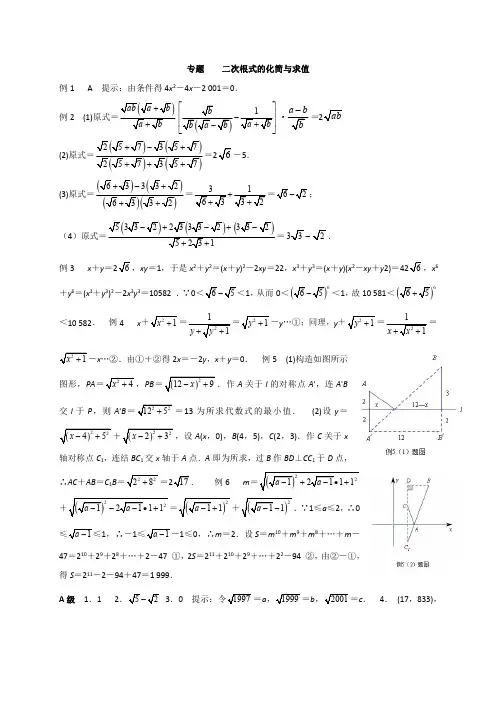 专题 二次根式的化简与求值
例1 A 提示：由条件得4x²－4x－2 001＝0．
例2 (1)原式＝[√ab(√a+√b)/(√a+√b)][√b/(√b(√a−√b))−1/(√a+√b)]·(a−b)/√b＝2√ab
(2)原式＝
＝2√6－5．
(3)原式＝
＝3/(√6+√3)+1/(√3+√2)＝√6−√2；
（4）原式＝
＝3√3−√2．
例3 x＋y＝2√6，xy＝1，于是x²＋y²＝(x＋y)²－2xy＝22，x³＋y³＝(x＋y)(x²－xy＋y2)＝42√6，x⁶
＋y⁶＝(x³＋y³)²－2x³y³＝10582 ．∵0＜√6−√5＜1，从而0＜(√6−√5)⁶＜1，故10 581＜(√6+√5)⁶
＜10 582． 例4 x＋√(x²+1)＝1/(y+√(y²+1))＝√(y²+1)－y…①；同理，y＋√(y²+1)＝1/(x+√(x²+1))＝
√(x²+1)－x…②．由①＋②得2x＝－2y，x＋y＝0． 例5 (1)构造如图所示
图形，PA＝√(x²+4)，PB＝√((12−x)²+9)．作A关于l的对称点A'，连A'B
交l于P，则A'B＝√(12²+5²)＝13为所求代数式的最小值． (2)设y＝
√((x−4)²+5²)＋√((x−2)²+3²)，设A(x，0)，B(4，5)，C(2，3)．作C关于x
轴对称点C₁，连结BC₁交x轴于A点．A即为所求，过B作BD⊥CC₁于D点，
∴AC＋AB＝C₁B＝√(2²+8²)＝2√17． 例6 m＝√((√(a−1))²+2√(a−1)•1+1²)
＋√((√(a−1))²−2√(a−1)•1+1²)＝√((√(a−1)+1)²)＋√((√(a−1)−1)²)．∵1≤a≤2，∴0
≤√(a−1)≤1，∴－1≤√(a−1)－1≤0，∴m＝2．设S＝m¹⁰＋m⁹＋m⁸＋…＋m－
47＝2¹⁰＋2⁹＋2⁸＋…＋2－47 ①，2S＝2¹¹＋2¹⁰＋2⁹＋…＋2²－94 ②，由②－①，
得S＝2¹¹－2－94＋47＝1 999．
A级 1．1 2．√5−√2 3．0 提示：令√1997＝a，√1999＝b，√2001＝c． 4． (17，833)，
B
A
3
2
x
12—x
l
2
3
A'
12
B'
例5（1）题图
D
B
C
A
C₁
例5（2）题图